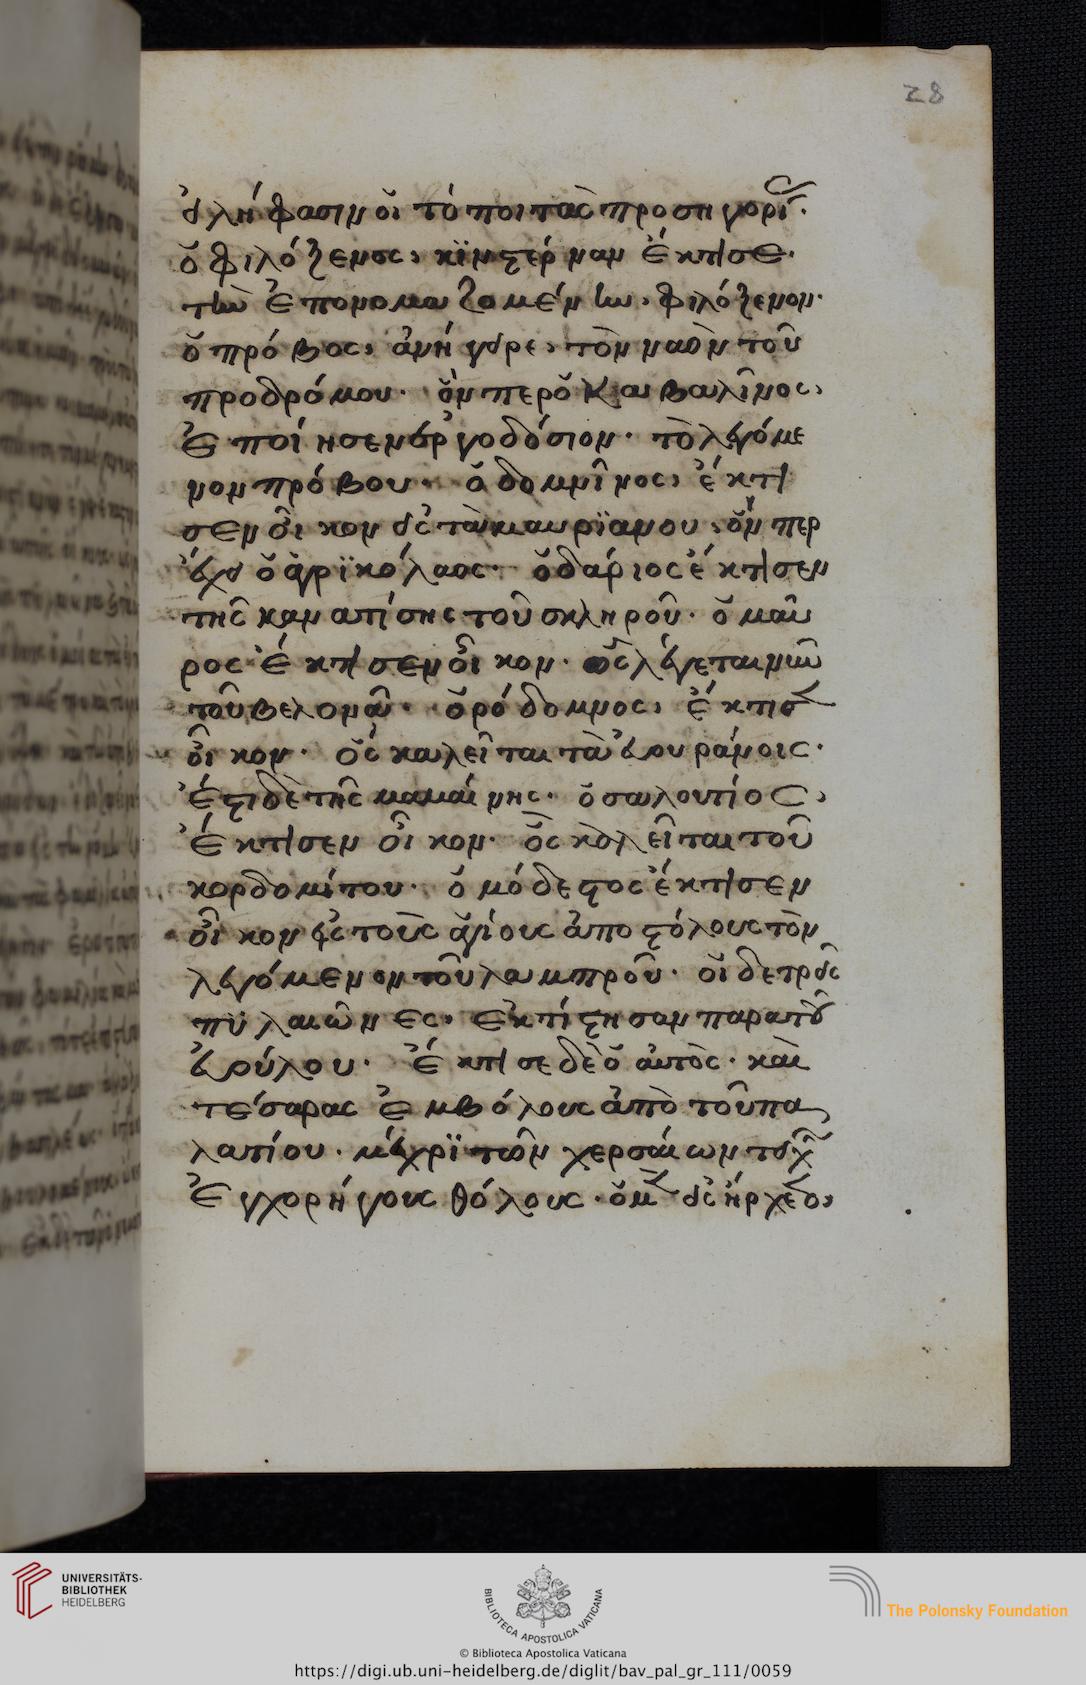 28
εἰλήφασιν οἱ τόποι τὰς προσηγορί.
ὁ φιλόξενος, κϊνστέρναν ἔκτησε.
τὴν ἐπονομαζομένην, φιλόξενον.
ὁ πρόβος, ἀνήγειρε, τὸν ναὸν τοῦ
προδρόμου. ὅνπερ ὁ καβαλῖνος,
ἐποίησεν ἐργοδόσιον. τὸ λεγόμε
νον πρόβου. ὁ δομνῖνος, ἔκτη
σεν οἶκον εἰς τὰ μαυρϊανου, ὅν περ
ἔχει ὁ ἀγρϊκόλαος. ὁ δαρίος ἔκτησεν
τῆς καμ ατίσης τοῦ σκληροῦ. ὁ μαῦ
ρος ἔκτησεν οἶκον. ὃς λέγεται νῦν
τοῦ βελονᾶ. ὁ ρόδομνος, ἔκτισ
οἶκον. ὃς καλεῖται τὰ ἐουράνοις.
ἔστι δὲ τῆς μαμαίνης. ὁ σαλουτίος,
ἔκτησεν οἶκον. ὃς καλεῖται τοῦ
κορδομίτου. ὁ μόδεστος ἔκτησεν
οἶκον εἰς τοὺς ἁγίους ἀποστόλους τὸν
λεγόμενον τοῦ λαμπροῦ. οἱ δε τρεῖς
πϋλαιῶνες, ἐκτίστησαν παρα τοῦ
ἐρύλου. ἔκτησε δὲ ὁ αὐτὸς. καὶ
τέσαρας ἐμβόλους ἀπὸ τοῦ πα
λατίου. μέχρϊ τῶν χερσαίων τειχ
ἐγχορήγους θόλους.
UNIVERSITÄTS-
BIBLIOTHEK
HEIDELBERG
BIBLIOTECA APOSTOLICA VATICANA
The Polonsky Foundation
© Biblioteca Apostolica Vaticana
https://digi.ub.uni-heidelberg.de/diglit/bav_pal_gr_111/0059